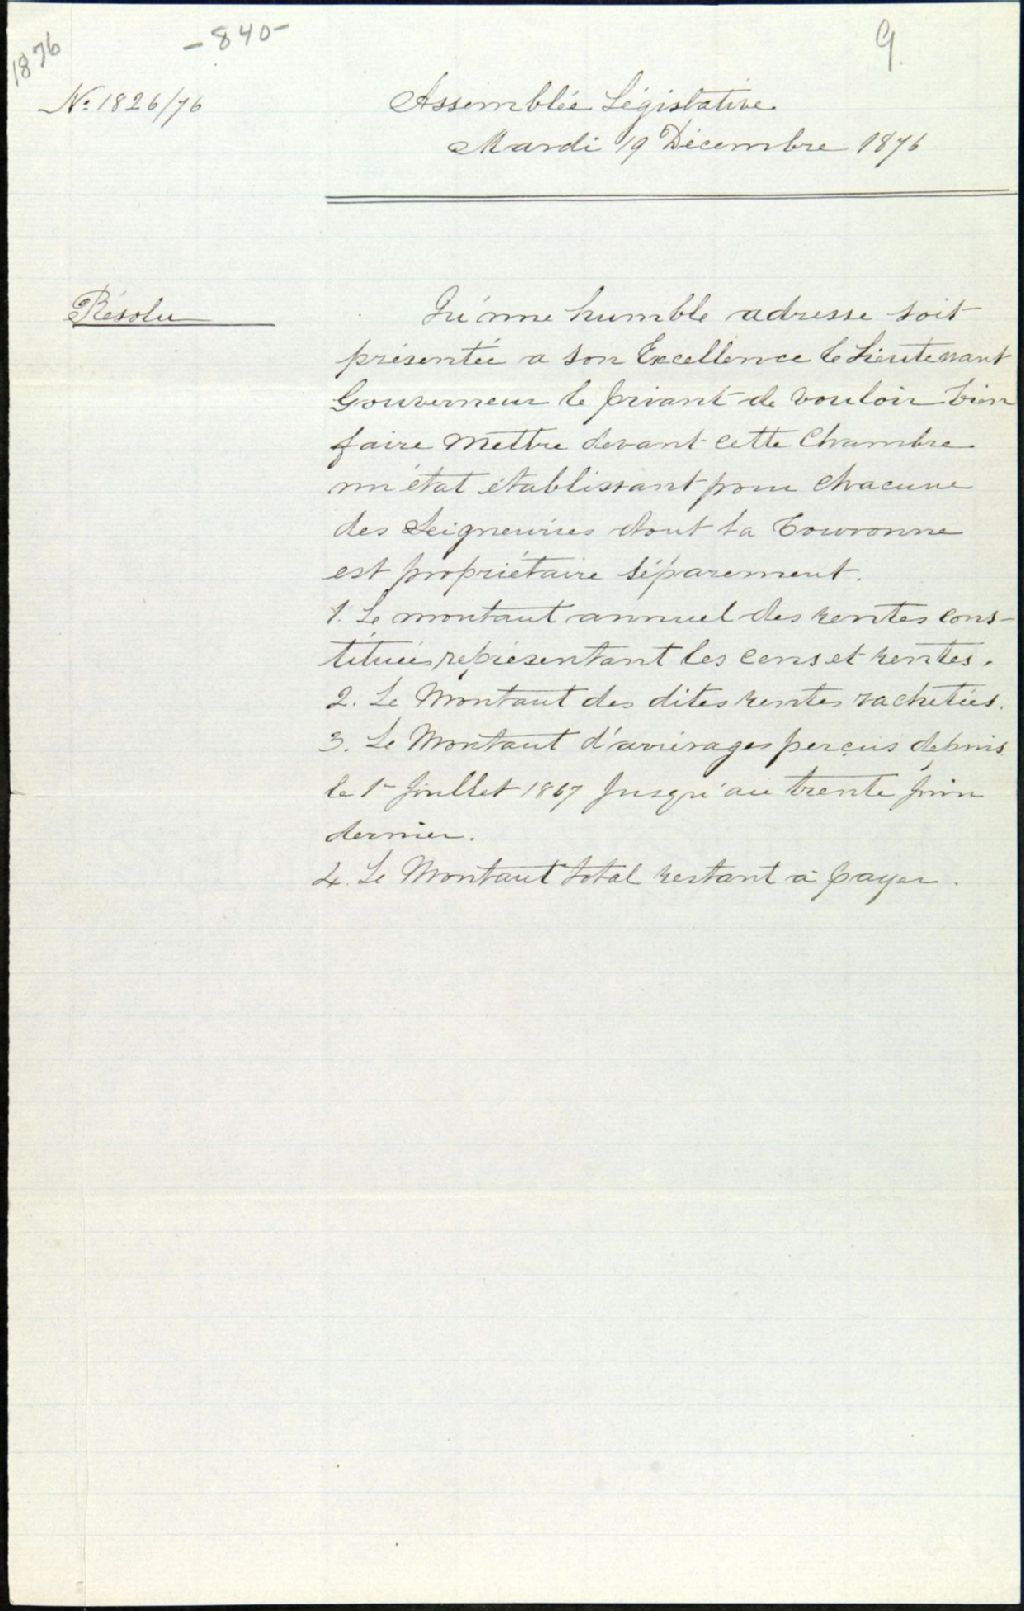 1876
-840-
G
No. 1826/76
Assemblée Législative
Mardi 19 Décembre 1876
Résolu
Qu'une humble adresse soit
présentée a son Excellence le Lieutenant
Gouverneur le priant de vouloir bien
faire mettre devant cette Chambre
un état établissant pour chacune
des Seigneuries dont la Couronne
est propriétaire séparement.
1. Le montant annuel des rentes cons-
tituées représentant les cens et rentes.
2. Le Montant des dites rentes rachetées.
3. Le Montant d'arriérages perçus depuis
le 1er Juillet 1867 jusqu'au trente Juin
dernier.
4. Le Montant total restant à payer.